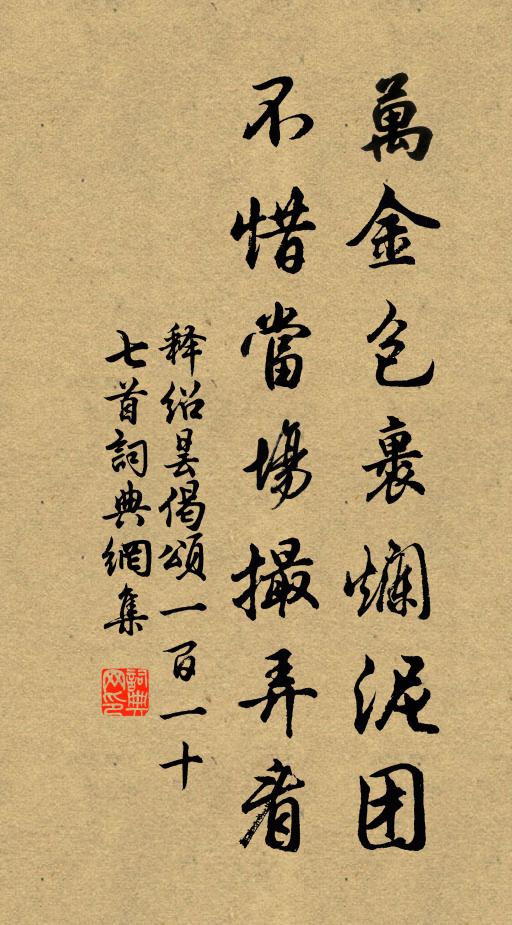 萬金包裹爛泥团
不惜當場撮弄看
释绍昙偈頌一百一十
七首詞典網集
詞典网印